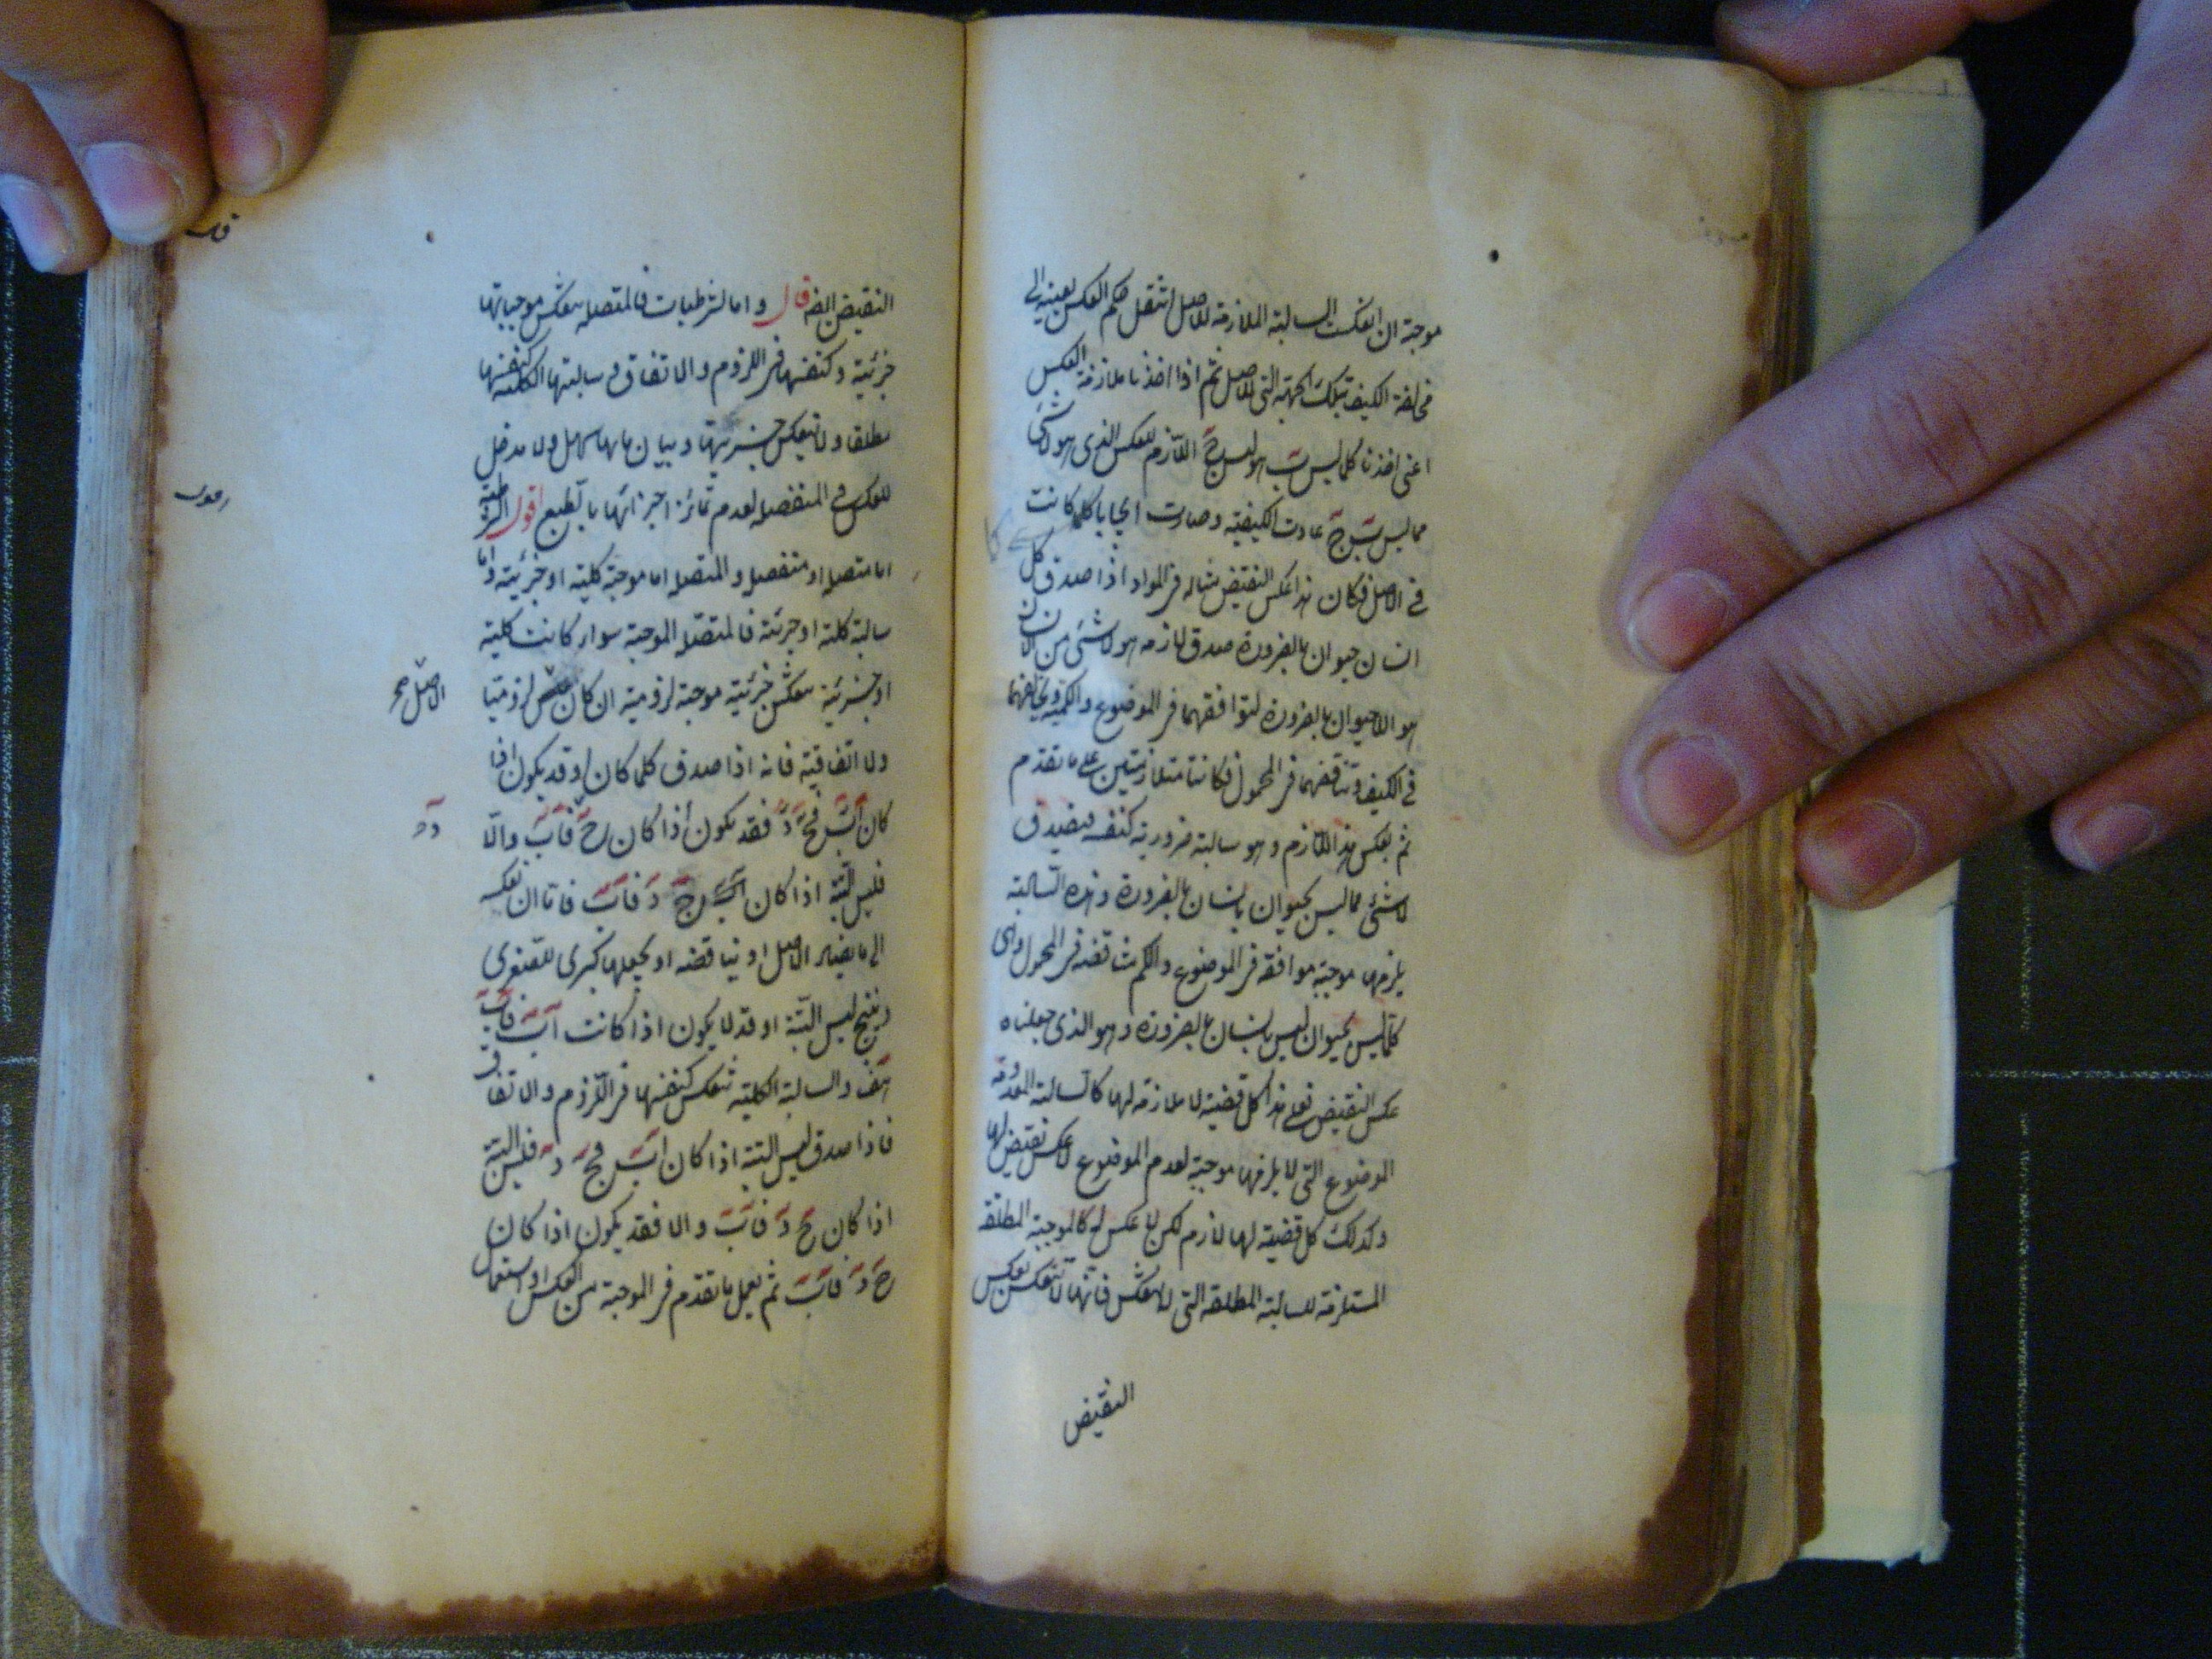 موجبة ان انعكست السالبة الملازمة للاصل انتقل حكم العكس بعينه الى
مخالفة الكيف تبلك الجهة التى للاصل ثم اذا اخذنا ملازمة العكس
اعنى اخذنا كلما ليس ب هو ليس ج اللازم للعكس الذى هو لا شئ
مما ليس ب ج عادت الكيفية وصارت ايجابا كما كانت
فى الاصل فكان هذا عكس النقيض مثاله فى المواد اذا صدق كل
انسان حيوان بالضرورة صدق لازمه هو لا شئ من الانسان
هو اللاحيوان بالضرورة لتوافقهما فى الموضوع والكمية وتخالفهما
فى الكيف وتناقضهما فى المحمول فكانتا متلازمتين على ما تقدم
ثم بعكس هذا اللازم وهو سالبة ضرورية كنفسه فيصدق
لا شئ مما ليس بحيوان بانسان بالضرورة وهذه السالبة
يلزمها موجبة موافقة فى الموضوع والكم مناقضه فى المحمول وهى
كلما ليس بحيوان ليس بانسان بالضرورة وهو الذى جعلناه
عكس النقيض فعلى هذا كل قضية لا ملازمة لها كالسالبة المعدومة
الموضوع التى لا يلزمها موجبة لعدم الموضوع لا عكس نقيض لها
وكذلك كل قضية لها لازم لكن لا عكس له كالموجبة المطلقة
المستلزمة للسالبة المطلقة التى لا تنعكس فانها لا تنعكس بعكس
النقيض
النقيض ايضا قال واما الشرطيات فالمتصلة تنعكس موجباتها
جزئية وكنفسها فى اللزوم والاتفاق وسالبتها الكلية كنفسها
مطلقا ولا تنعكس جزئيتها وبيان ما لها سهل ولا مدخل
للعكس فى المنفصلة لعدم تمائز اجزائها بالطبع اقول الشرطية
اما متصلة او منفصلة والمتصلة اما موجبة كلية او جزئية واما
سالبة كلية او جزئية فالمتصلة الموجبة سواء كانت كلية
او جزئية تنعكس جزئية موجبة لزومية ان كان لزوميا
الاصل صح
ولا اتفاقية فانه اذا صدق كلما كان او قد يكون اذا
كان اب فج د فقد يكون اذا كان ج د فاب والا
فليس البتة اذا كان ج د فاب فاما ان نعكسه
الى ما يضاد الاصل او يناقضه او نجعلها كبرى للصغرى
وينتج ليس البتة او قد لا يكون اذا كانت اب فاب
هف والسالبة الكلية تنعكس كنفسها فى اللزوم والاتفاق
فاذا صدق ليس البتة اذا كان اب فج د فليس البتة
اذا كان ج د فاب والا فقد يكون اذا كان
ج د فاب ثم نعمل ما تقدم فى الموجبة من العكس او استعمال